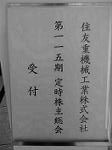 住友重機械工業株式会社
第一一五期 定時株主総会
受付